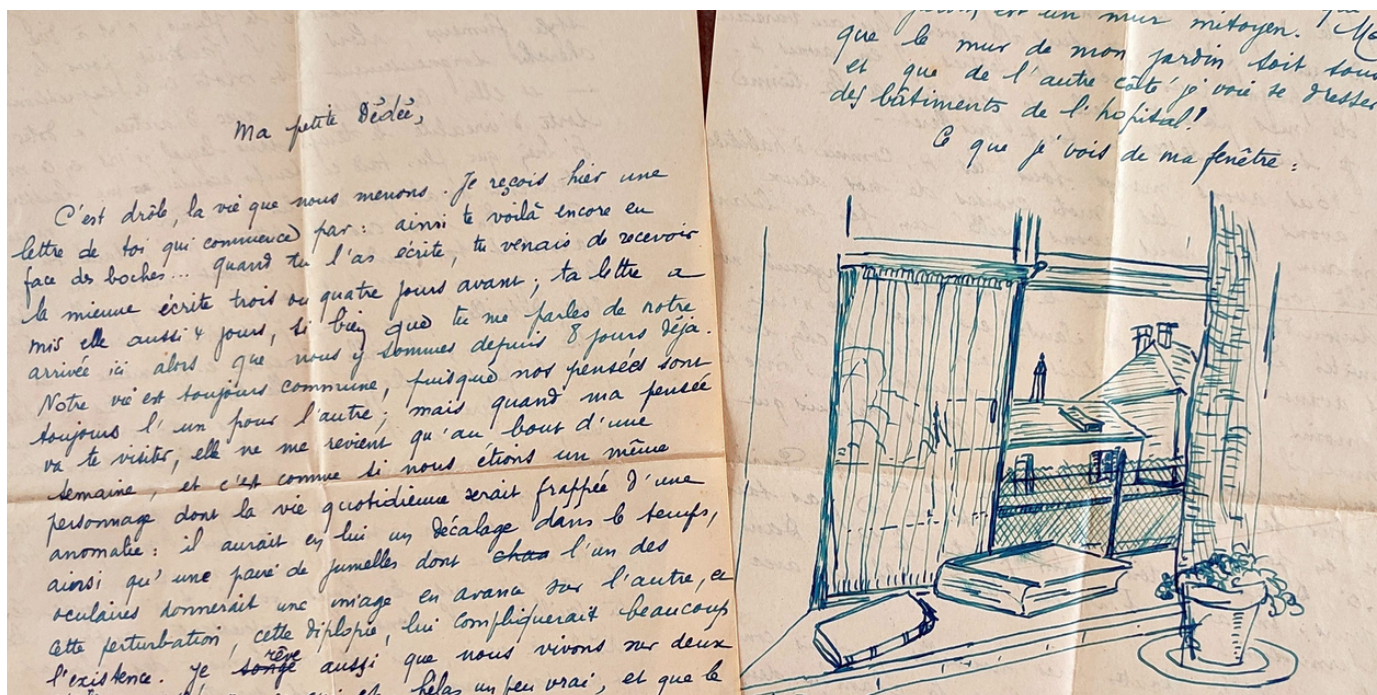 Ma petite Dédée,
C'est drôle, la vie que nous menons. Je reçois hier une
lettre de toi qui commence par : ainsi te voilà encore en
face des boches... quand tu l'as écrite, tu venais de recevoir
la mienne écrite trois ou quatre jours avant ; ta lettre a
mis elle aussi 4 jours, si bien que tu me parles de notre
arrivée ici alors que nous y sommes depuis 8 jours déjà.
Notre vie est toujours commune, puisque nos pensées sont
toujours l'un pour l'autre ; mais quand ma pensée
va te visiter, elle ne me revient qu'au bout d'une
semaine, et c'est comme si nous étions un même
personnage dont la vie quotidienne serait frappée d'une
anomalie : il aurait en lui un décalage dans le temps,
ainsi qu'une paire de jumelles dont l'un des
oculaires donnerait une image en avance sur l'autre, et
cette perturbation, cette diplopie, lui compliquerait beaucoup
l'existence. Je songe rêve aussi que nous vivons sur deux
hélas un peu vrai, et que le
est un mur mitoyen.
que le mur de mon jardin soit
et que de l'autre côté je voie se dresser
des bâtiments de l'hopital !
Ce que je vois de ma fenêtre :